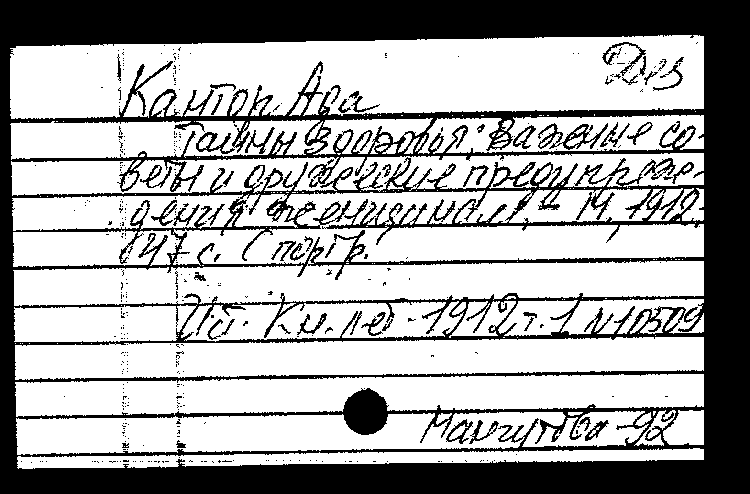 Дез
Кантор, Ада
Тайны здоровья: Важные со-
веты и дружеские предупреж-
дения женщинам. – М., 1912.
147 с. С портр.
И.т. Кн. лет. 1912 т. 1 N 10509
Мангутова-92